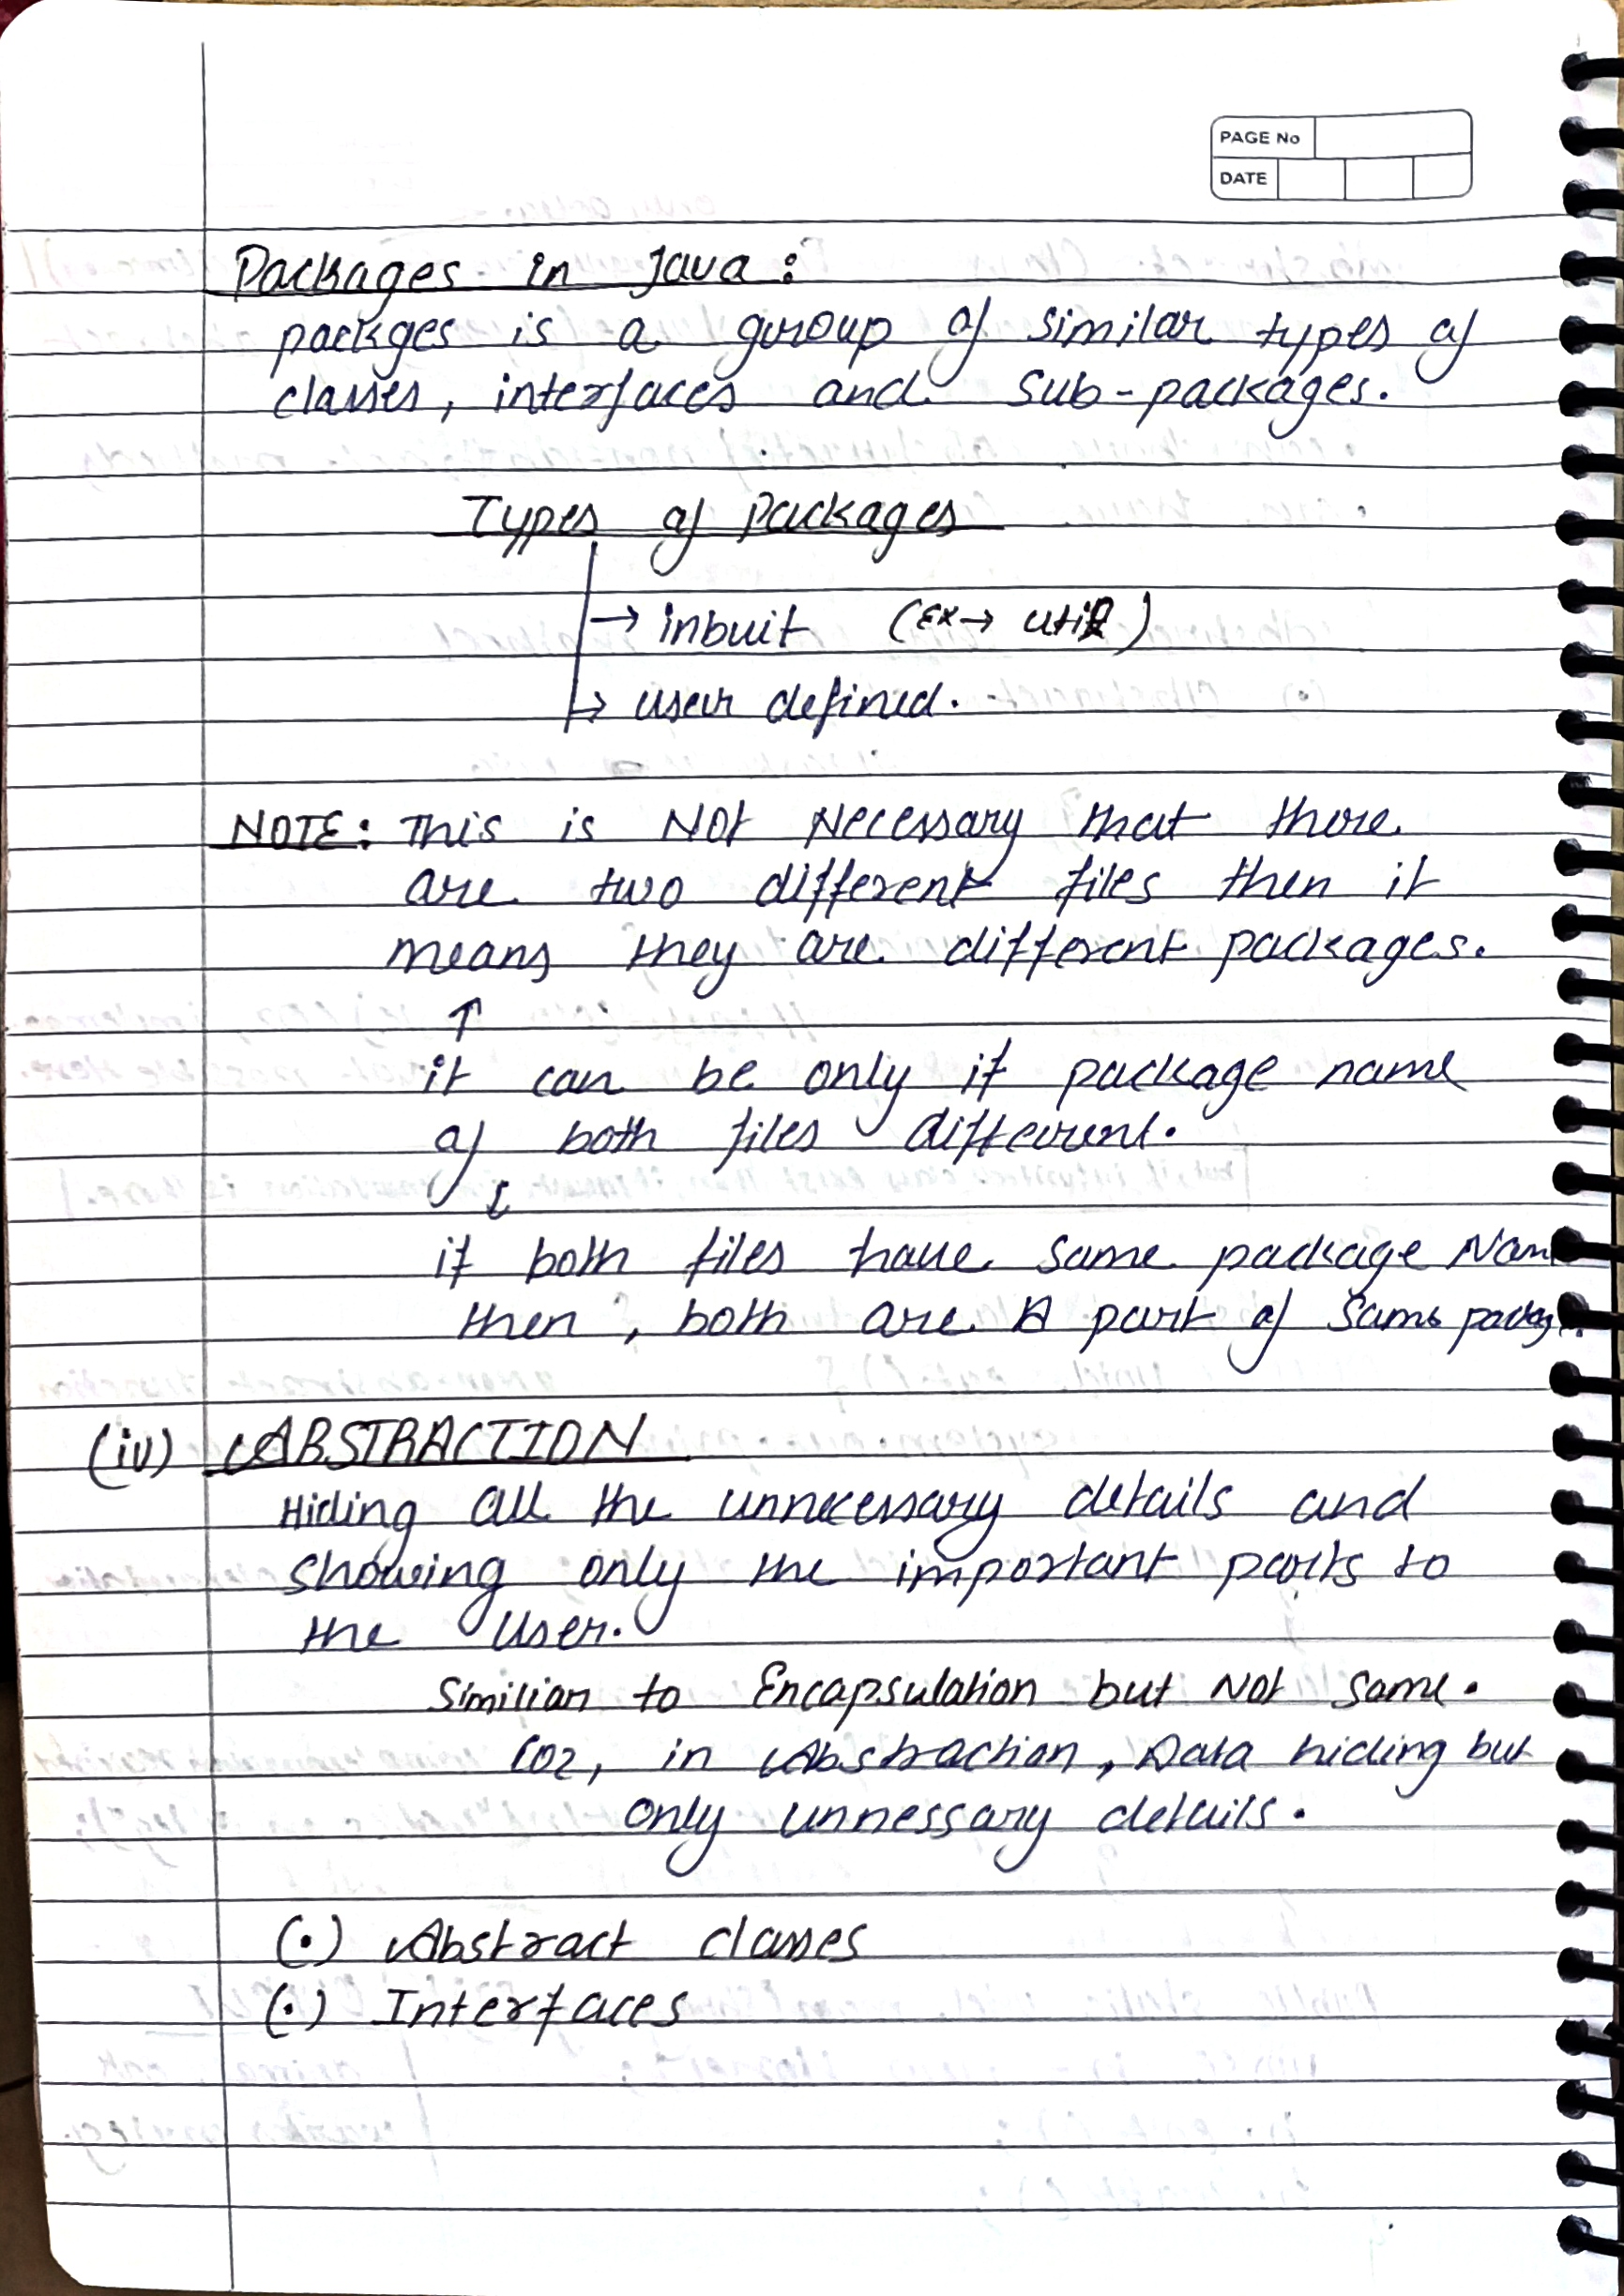 PAGE No
DATE
Packages in Java:
packges is a group of similar types of
classes, interfaces and sub-packages.
Types of packages
→ inbuit (Ex→ util)
↳ user defined.
NOTE: This is Not Necessary that there
are two different files then it
means they are different packages.
↑
it can be only if package name
of both files different.
↓
if both files have same package Nam
then, both are a part of same packag.
(iv) ABSTRACTION
Hiding all the unnecessary details and
showing only the important parts to
the User.
Similiar to Encapsulation but Not same.
coz, in Abstraction, Data hiding but
only unnessary details.
(•) Abstract classes
(•) Interfaces